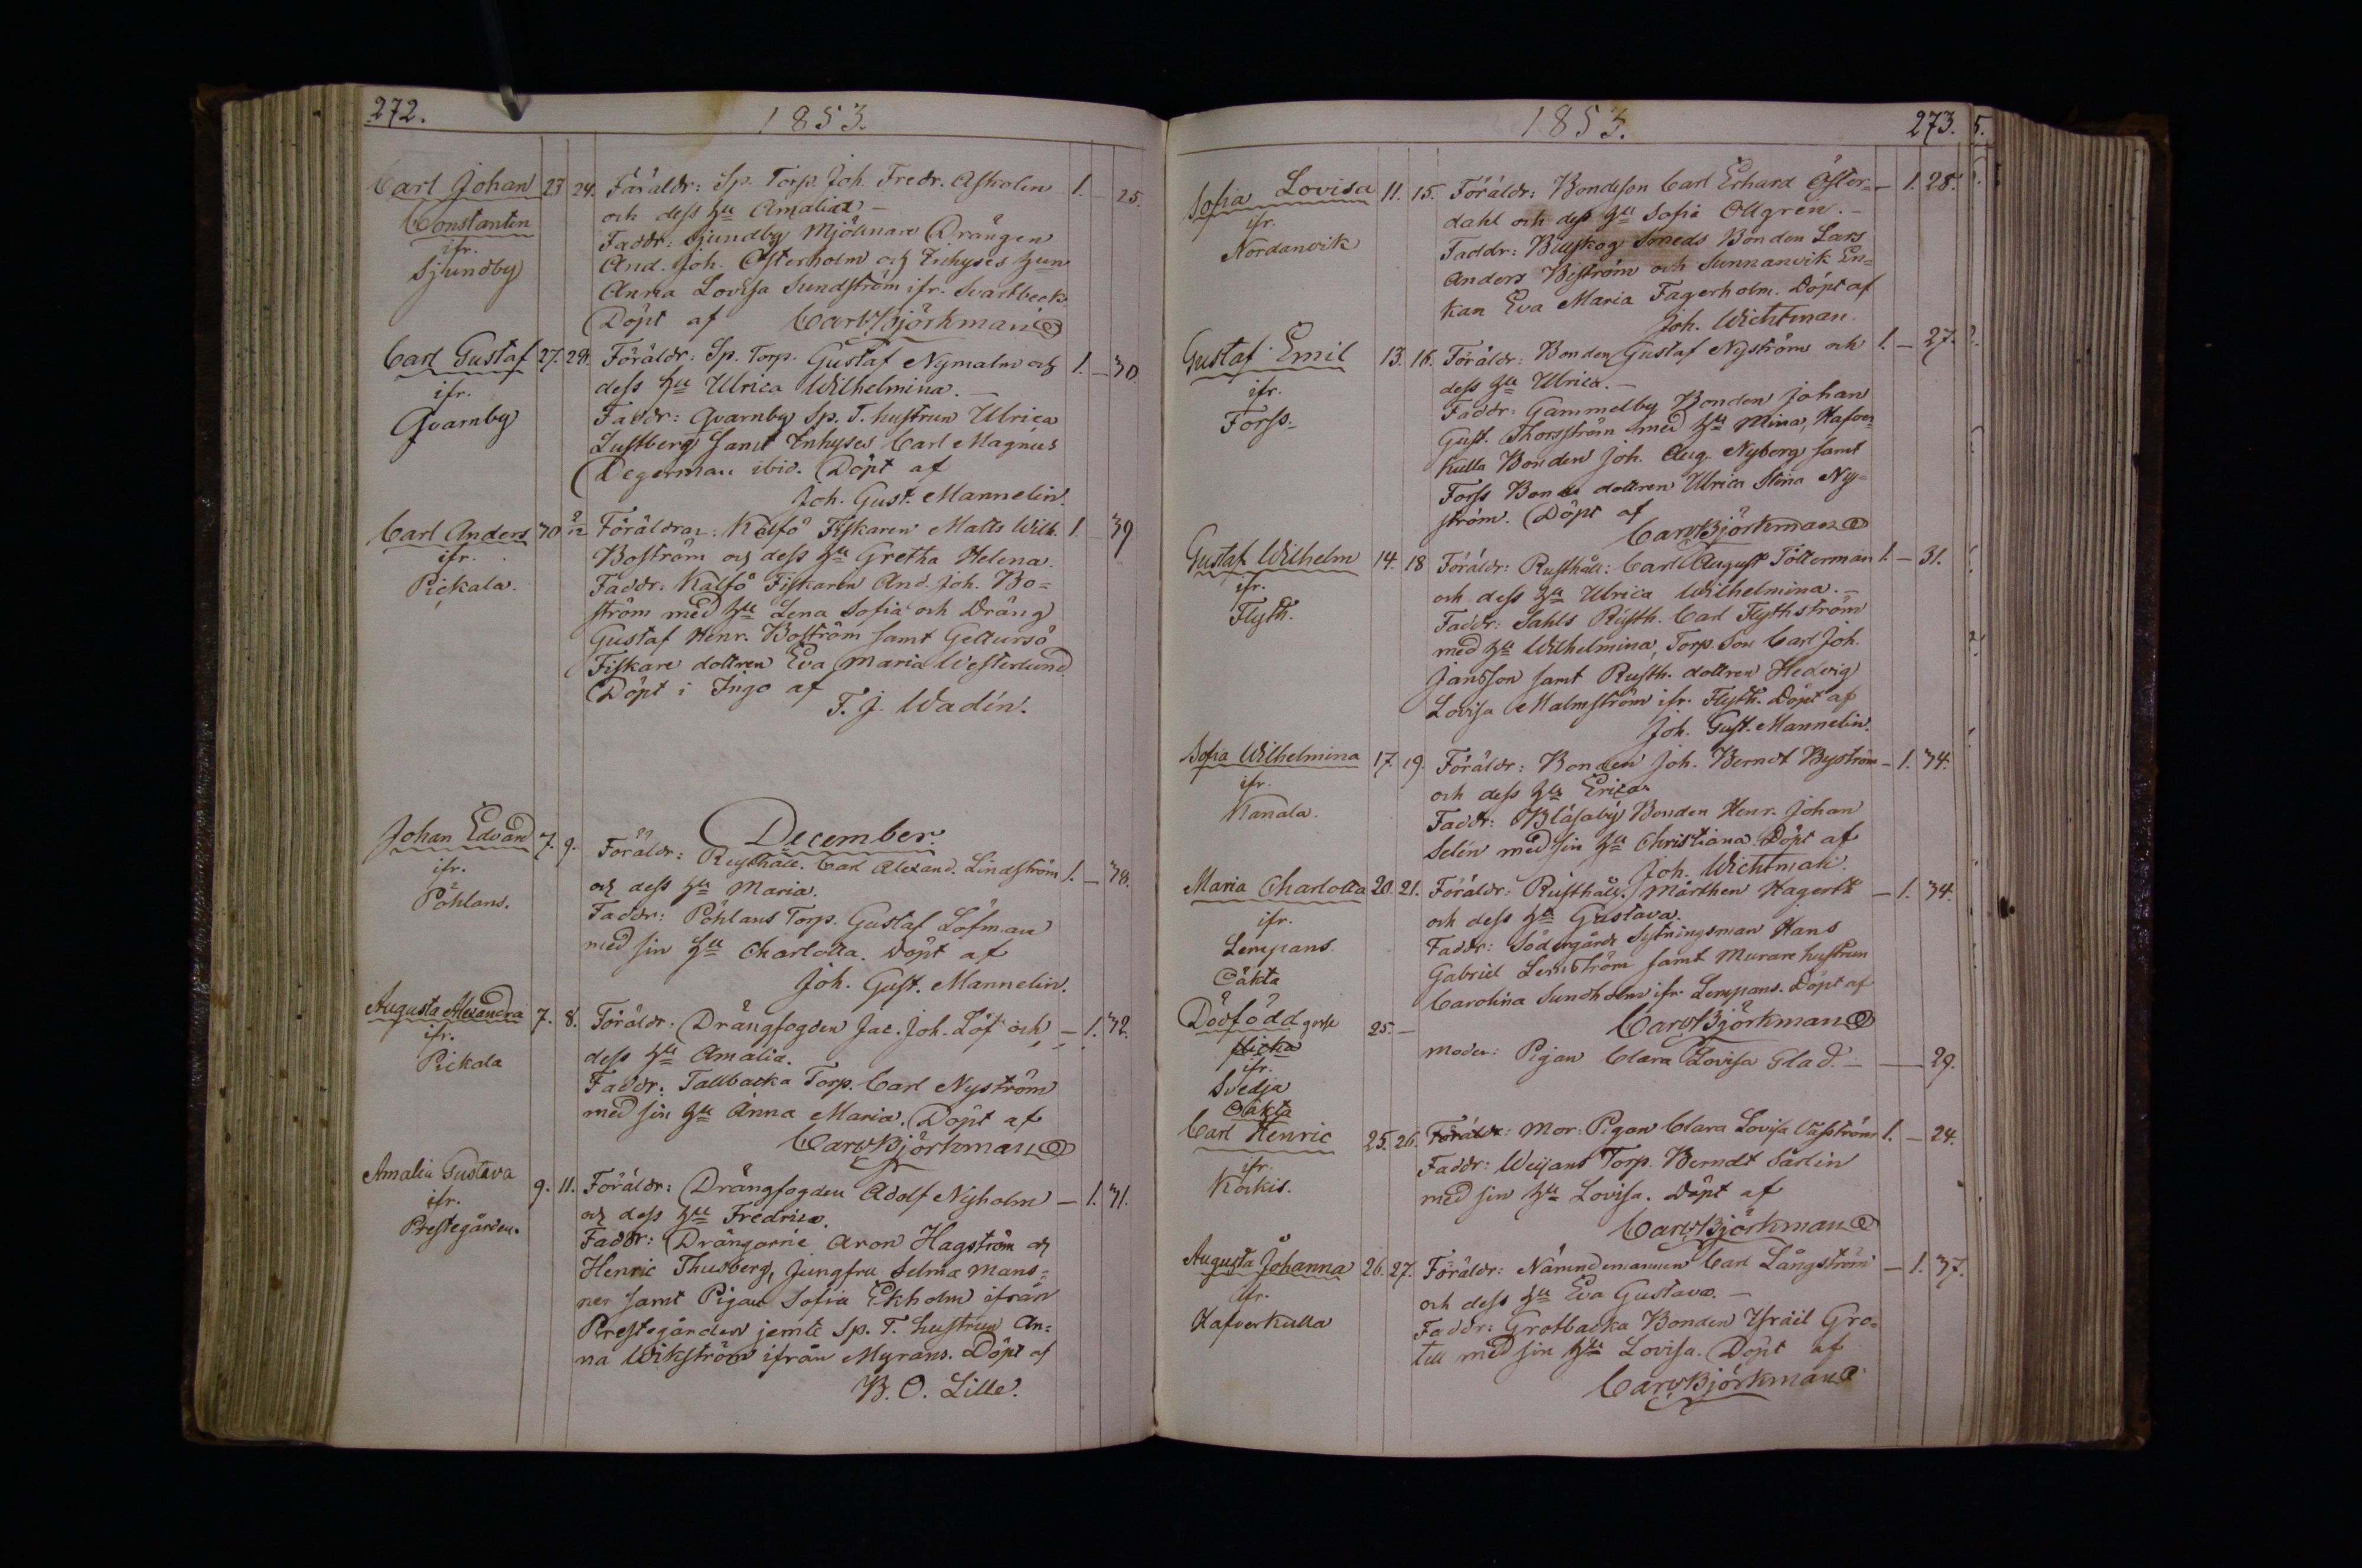 272.
1853.
Carl Johan 23 24. Föräldr: Sp. Torp. Joh. Fredr. Asholin 1. — 25.
Constantin och dess hu Amalia —
ifr. Faddr: Sjundby Mjölnare Drängen
Sjundby And. Joh. Österholm och Inhyses hun
Anna Lovisa Sundström ifr. Svartbeck
Döpt af Carl Björkman
Carl Gustaf 27. 29. Föräldr: Sp. Torp. Gustaf Nymalm och 1. — 30.
ifr. dess hu Ulrica Wilhelmina. —
Qvarnby Faddr: Qvarnby Sp. T. hustrun Ulrica
Lustberg samt Inhyses Carl Magnus
Degerman ibid. Döpt af
Joh. Gust. Mannelin.
Carl Anders 30 2/12 Föräldrar: Kalfö Fiskaren Matts Wilh. 1. — 39
ifr. Boström och dess hu Gretha Helena.
Pickala. Faddr: Kalfö Fiskaren And. Joh. Bo=
ström med hu Lena Sofia och Dräng
Gustaf Henr. Boström samt Geltursö
Fiskare dottren Eva Maria Westerlund.
Döpt i Ingo af
F. J. Wadén.
December.
Johan Edvard 7. 9. Föräldr: Rusthåll. Carl Alexand. Lindström 1. — 38.
ifr. och dess hu Maria.
Pöhlans. Faddr: Pöhlans Torp. Gustaf Löfman
med sin hu Charlotta. Döpt af
Joh. Gust. Mannelin.
Augusta Alexandra 7. 8. Föräldr: Drängfogden Jac. Joh. Löf och — 1. 32.
ifr. dess hu Amalia.
Pickala Faddr: Tallbacka Torp. Carl Nyström
med sin hu Anna Maria. Döpt af
Carl Björkman
Amalia Gustava 9. 11. Föräldr: Drängfogden Adolf Nyholm — 1. 31.
ifr. och dess hu Fredrica.
Prestegården. Faddr: Drängarne Aron Hagström och
Henric Thusberg, Jungfru Selma Mans=
ner samt Pigan Sofia Ekholm ifrån
Prestegården jemte Sp. T. hustrun An=
na Wikström ifrån Myrans. Döpt af
B. O. Lille.
1853.
273. 5.
Sofia Lovisa 11. 15. Föräldr: Bondeson Carl Erhard Öster= — 1. 28.
ifr. dahl och dess hu Sofia Ollgrén. —
Nordanvik Faddr: Båuskog Smeds Bonden Lars
Anders Biström och Sunnanvik En=
kan Eva Maria Fagerholm. Döpt af
Joh. Wichtman.
Gustaf Emil 13. 16. Föräldr: Bonden Gustaf Nyström och 1. — 27.
ifr. dess hu Ulrica. —
Forss. Faddr: Gammelby Bonden Johan
Gust. Thorsström med hu Mina, Hafver
kulla Bonden Joh. Aug. Nyberg samt
Forss Bonde dottren Ulrica Stina Ny=
ström. Döpt af
Carl Björkman
Gustaf Wilhelm 14. 18 Föräldr: Rusthåll: Carl August Tötterman 1. — 31.
ifr. och dess hu Ulrica Wilhelmina. —
Flyth. Faddr: Sahls Rusth. Carl Flythström
med hu Wilhelmina, Torp. Son Carl Joh.
Jansson samt Rusth. dottren Hedvig
Lovisa Malmström ifr. Flyth. Döpt af
Joh. Gust. Mannelin.
Sofia Wilhelmina 17. 19. Föräldr: Bonden Joh. Berndt Byström — 1. 34.
ifr. och dess hu Erica.
Kanala. Faddr: Blåsaby Bonden Henr. Johan
Selin med sin hu Christiana. Döpt af
Joh. Wichtman.
Maria Charlotta 20. 21. Föräldr: Rusthåll. Mårthen Hagert — 1. 34.
ifr. och dess hu Gustava.
Lempans. Faddr: Södergårds Sytningsman Hans
Oäkta Gabriel Lemström samt Murare hustrun
Carolina Sundholm ifr. Lempans. Döpt af
Carl Björkman
Dödfödd gosse 25. —
flicka Moder: Pigan Clara Lovisa Glad. — — 29.
ifr.
Svedja
Oäkta
Carl Henric 25. 26. Föräldr: Mor: Pigan Clara Lovisa Vasström 1. — 24.
ifr. Faddr: Weijans Torp. Berndt Sarlin
Köckis. med sin hu Lovisa. Döpt af
Carl Björkman
Augusta Johanna 26. 27. Föräldr: Nämndemannen Carl Långström — 1. 37.
ifr. och dess hu Eva Gustava. —
Hafverkulla Faddr: Grotbacka Bonden Israel Gro=
tell med sin hu Lovisa. Döpt af
Carl Björkman